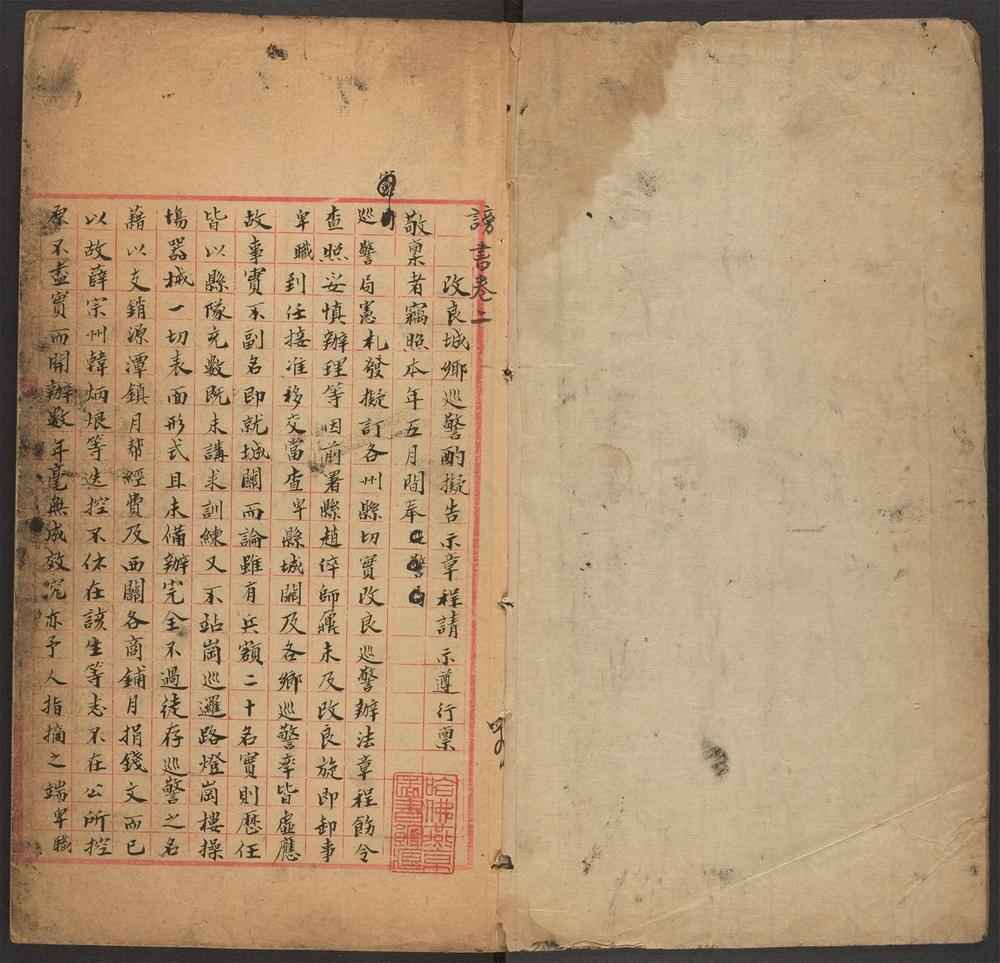 謗書卷二
改良城鄉巡警酌擬告示章程請示遵行稟
敬稟者竊照本年五月間奉
巡警局憲札發擬訂各州縣切實改良巡警辦法章程飭令
查照妥慎辦理等因前署縣趙倅師鼐未及改良旋即卸事
卑職到任接准移交當查卑縣城關及各鄉巡警率皆虛應
故事實不副名即就城關而論雖有兵額二十名實則歷任
皆以縣隊充數既未講求訓練又不站崗巡邏路燈崗樓操
塲器械一切表面形式且未備辦完全不過徒存巡警之名
藉以支銷源潭鎮月幫經費及西關各商鋪月捐錢文而已
以故薛宗州韓炳烺等迭控不休在該生等志不在公所控
原不盡實而開辦數年毫無成效究亦予人指摘之端卑職
哈佛燕京圖書館滙